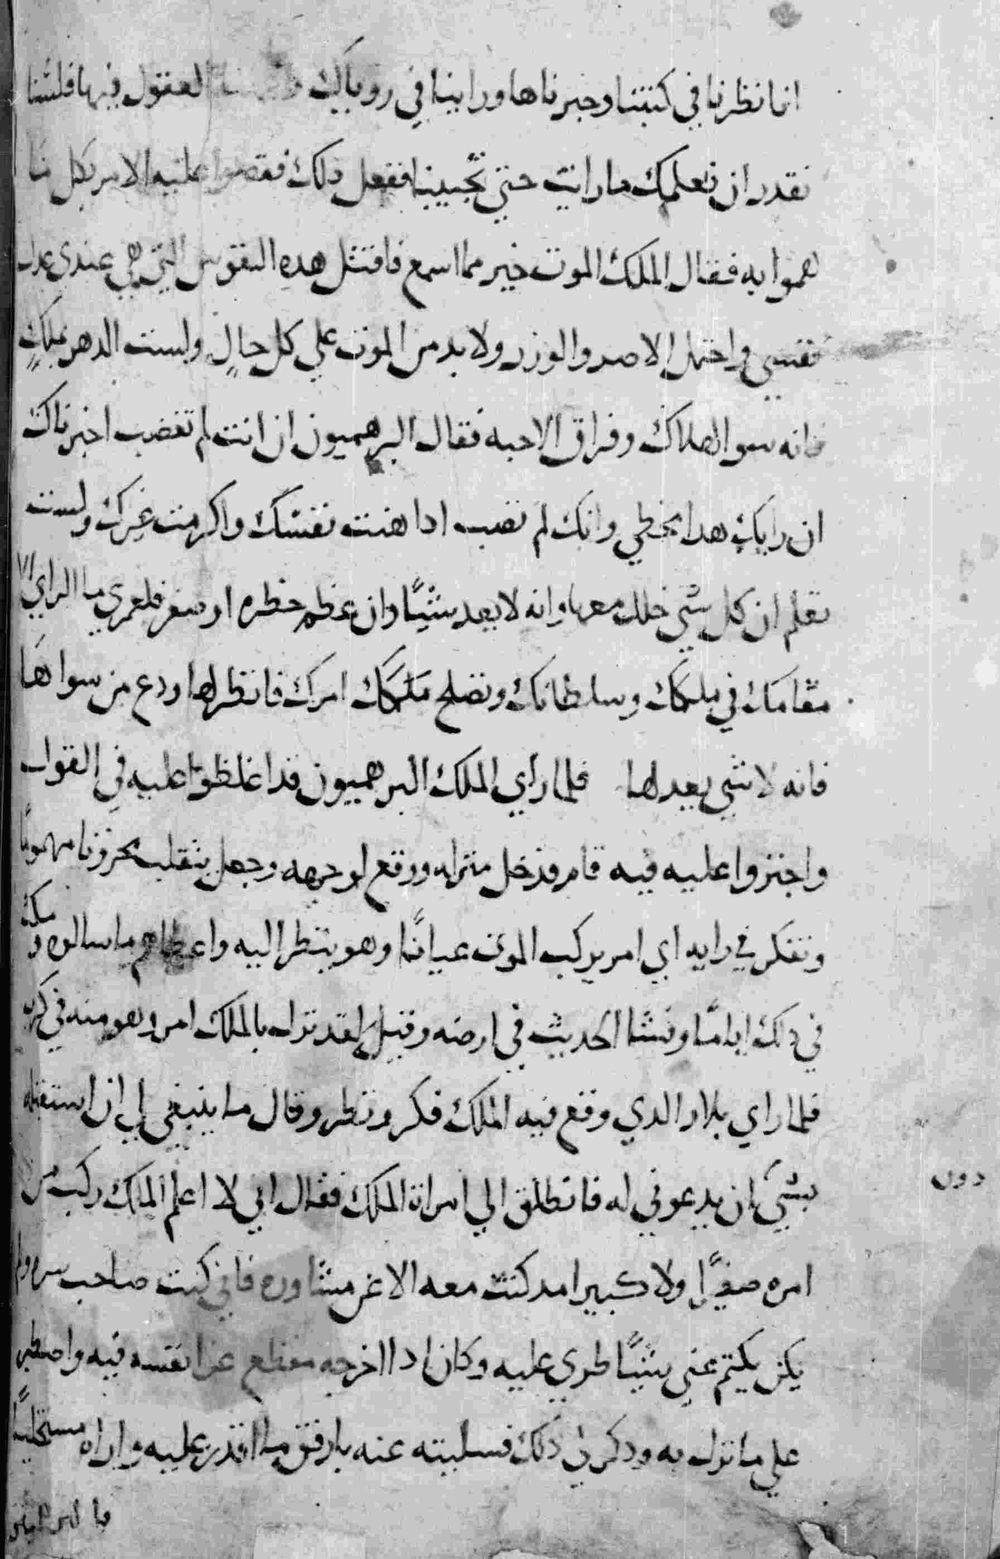 انا نظرنا في كتبنا وخبرناها وراينا في روياك العقول فيها فلسنا
نقدر ان نعلمك ما رايت حتي تجيبنا ففعل ذلك فقصوا عليه الامر بكل ما
هموا به فقال الملك الموت خير مما اسمع فاقتل هده النفوس التي هي عندي عدل
نفسي واحتمل الاصر والوزر ولا بد من الموت علي كل حال ولست الدهر بملك
فانه سوا الهلاك وفراق الاحبه فقال البرهميون ان انت لم تغضب اخبرناك
ان رايك هدا يخطي وانك لم تصب ادا هنت نفسك واكرمت غيرك ولست
تعلم ان كل شي خلك معها وانه لا يعد شيًا وان عظم خطره او صغر فلعمري ما الراي الا
مقامك في ملكك وسلطانك وتصلح مملكتك امرك فانظر لها ودع من سواها
فانه لا شي يعدلها فلما راي الملك البرهميون قد اغلظوا عليه في القول
واجتروا عليه فيه قام فدخل منزله ووقع لوجهه وجعل يتقلب محزونا مهمومًا
وتفكر في رايه اي امر يركب الموت عيانًا وهو ينظر اليه واعطاهم ما سالوه ومكث
في ذلك ايامًا وفشا الحديث في ارضه وقيل لقد نزل بالملك امر وهو منه في كرب
فلما راي بلار الدي وقع فيه الملك فكر ونظر وقال ما ينبغي لي ان استقبله
بشي دون ان يدعوني له فانطلق الي امراة الملك فقال اني لا اعلم الملك ركب من
امره صغيرًا ولا كبيرا مد كنت معه الا عن مشاوره فاني كنت صاحب سره ولم
يكن يكتم عني شيًا طري عليه وكان ادا اخرجه مفظع عزا نفسه فيه واصطبر
علي ما نزل به ودكر لي ذلك فسليته عنه بارفق ما اقدر عليه واراه مستخليًا